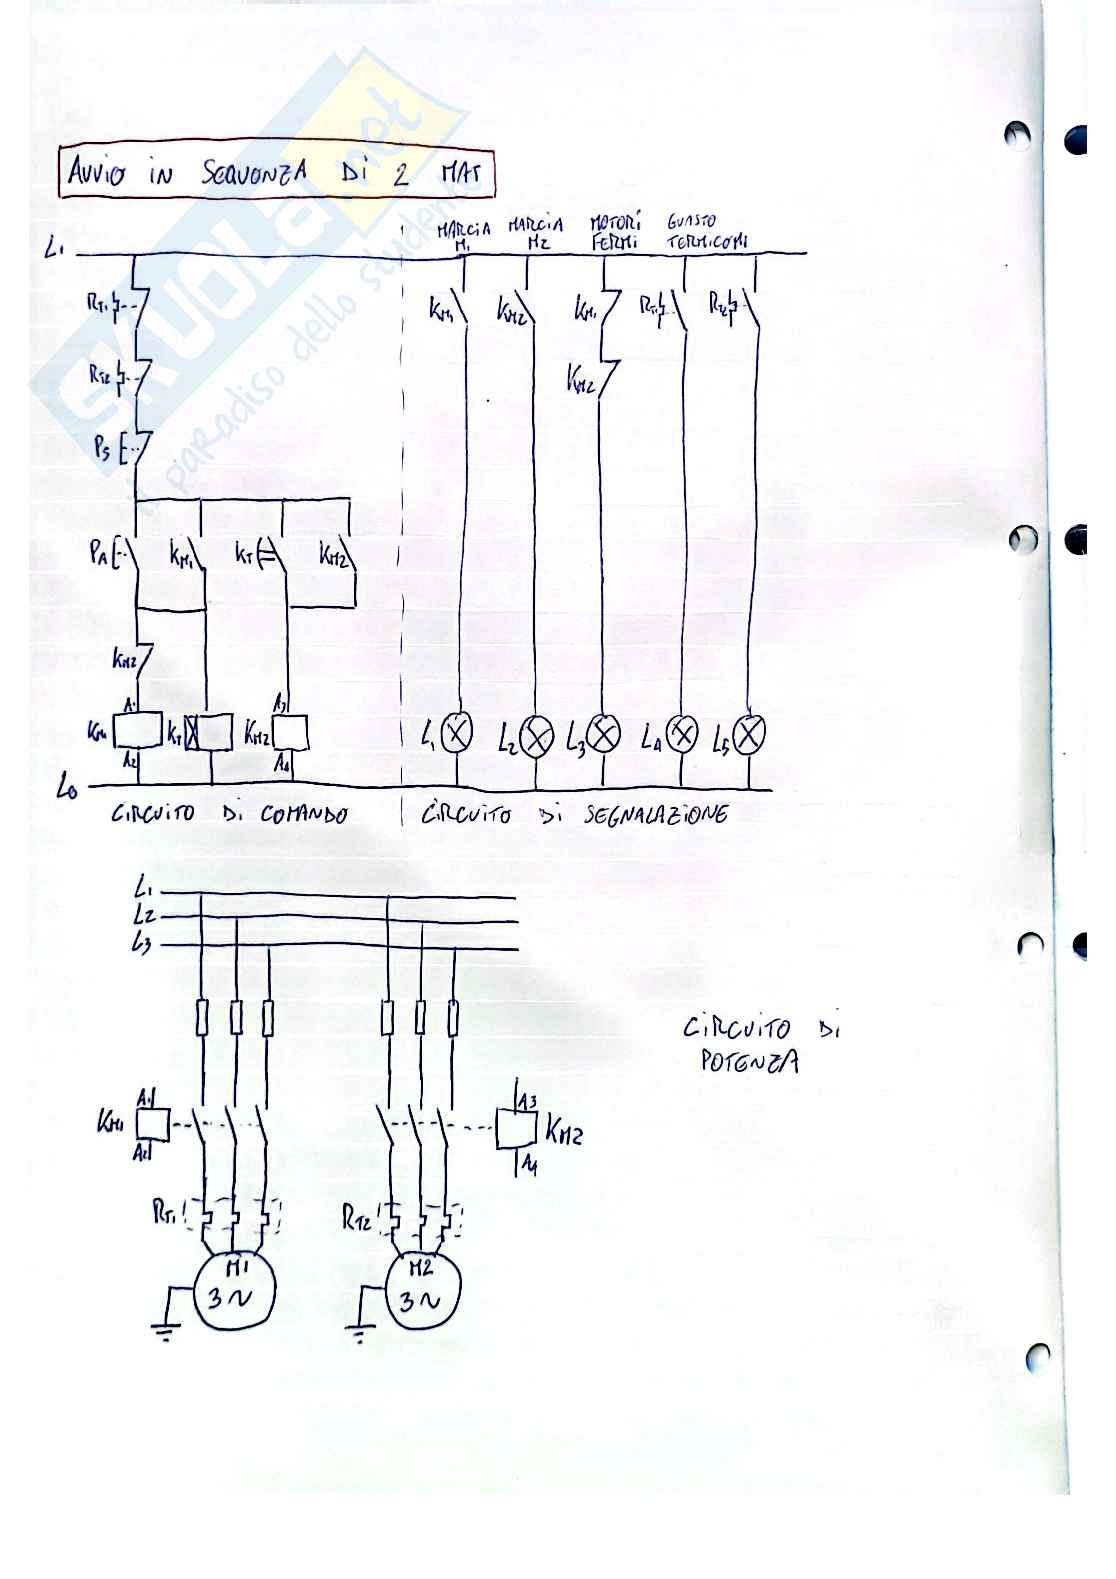 AVVIO IN SEQUENZA DI 2 MAT
SKUOLA.net
il paradiso dello studente
MARCIA M1
MARCIA M2
MOTORI FERMI
GUASTO TERMICO M1
L1
RT1
KM1
KM2
KM1
RT1
RT2
RT2
KM2
PS
PA
KM1
KT
KM2
KM2
A1
A3
KM1
KT
KM2
L1
L2
L3
L4
L5
A2
A4
L0
CIRCUITO DI COMANDO
CIRCUITO DI SEGNALAZIONE
L1
L2
L3
CIRCUITO DI
POTENZA
A1
A3
KM1
KM2
A2
A4
RT1
RT2
M1
3~
M2
3~